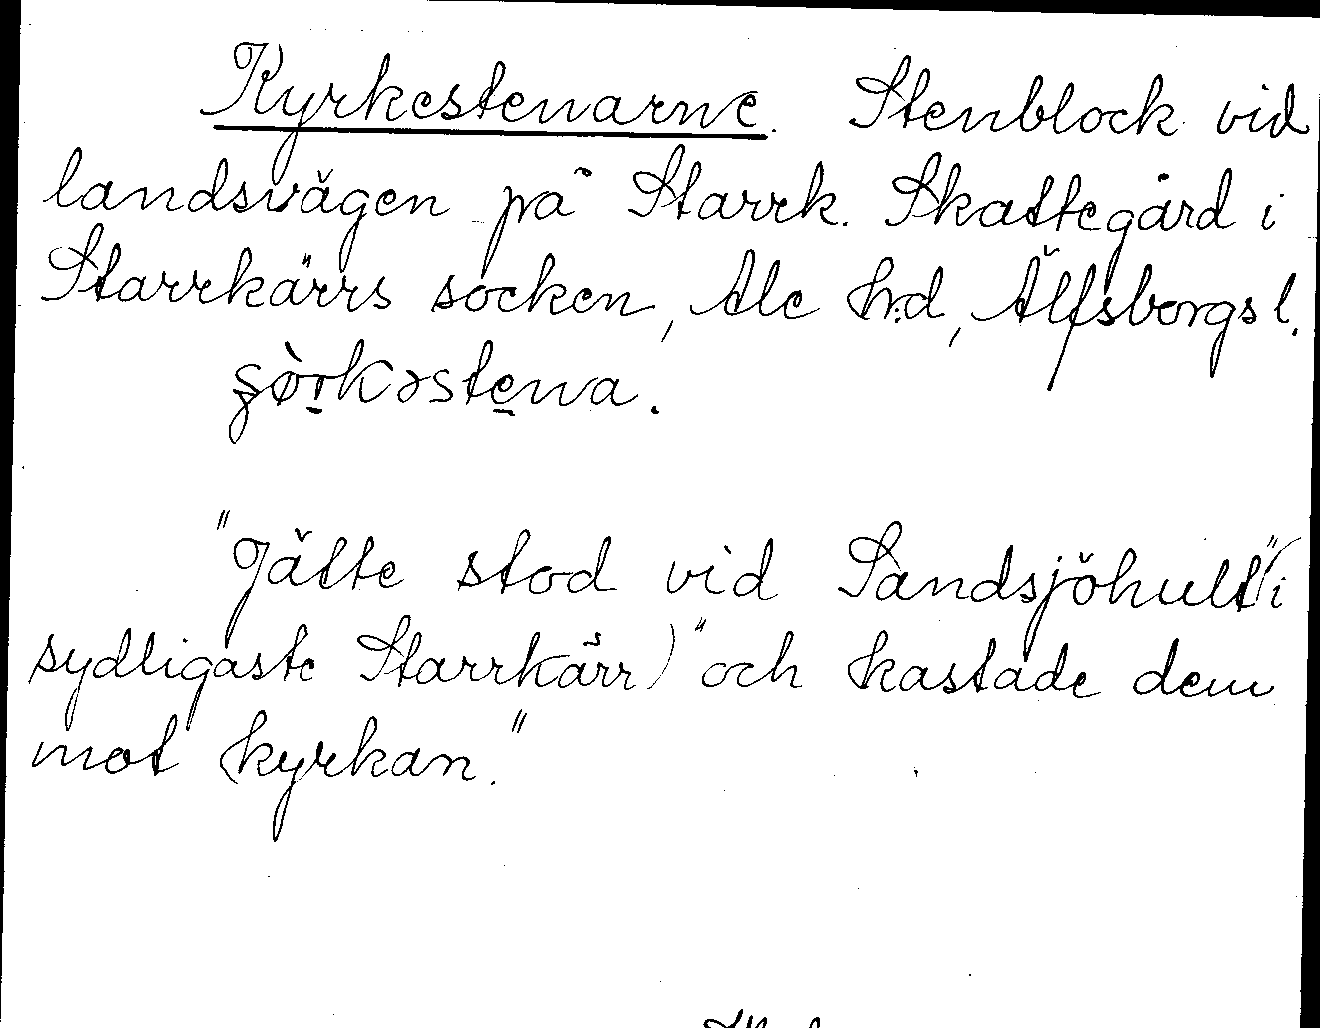 Kyrkestenarne. Stenblock vid
landsvägen på Starrk. Skattegård i
Starrkärrs socken, Ale h:d, Älfsborgs l.
"Jätte stod vid Sandsjöhult" (i
sydligaste Starrkärr) "och kastade dem
mot kyrkan."